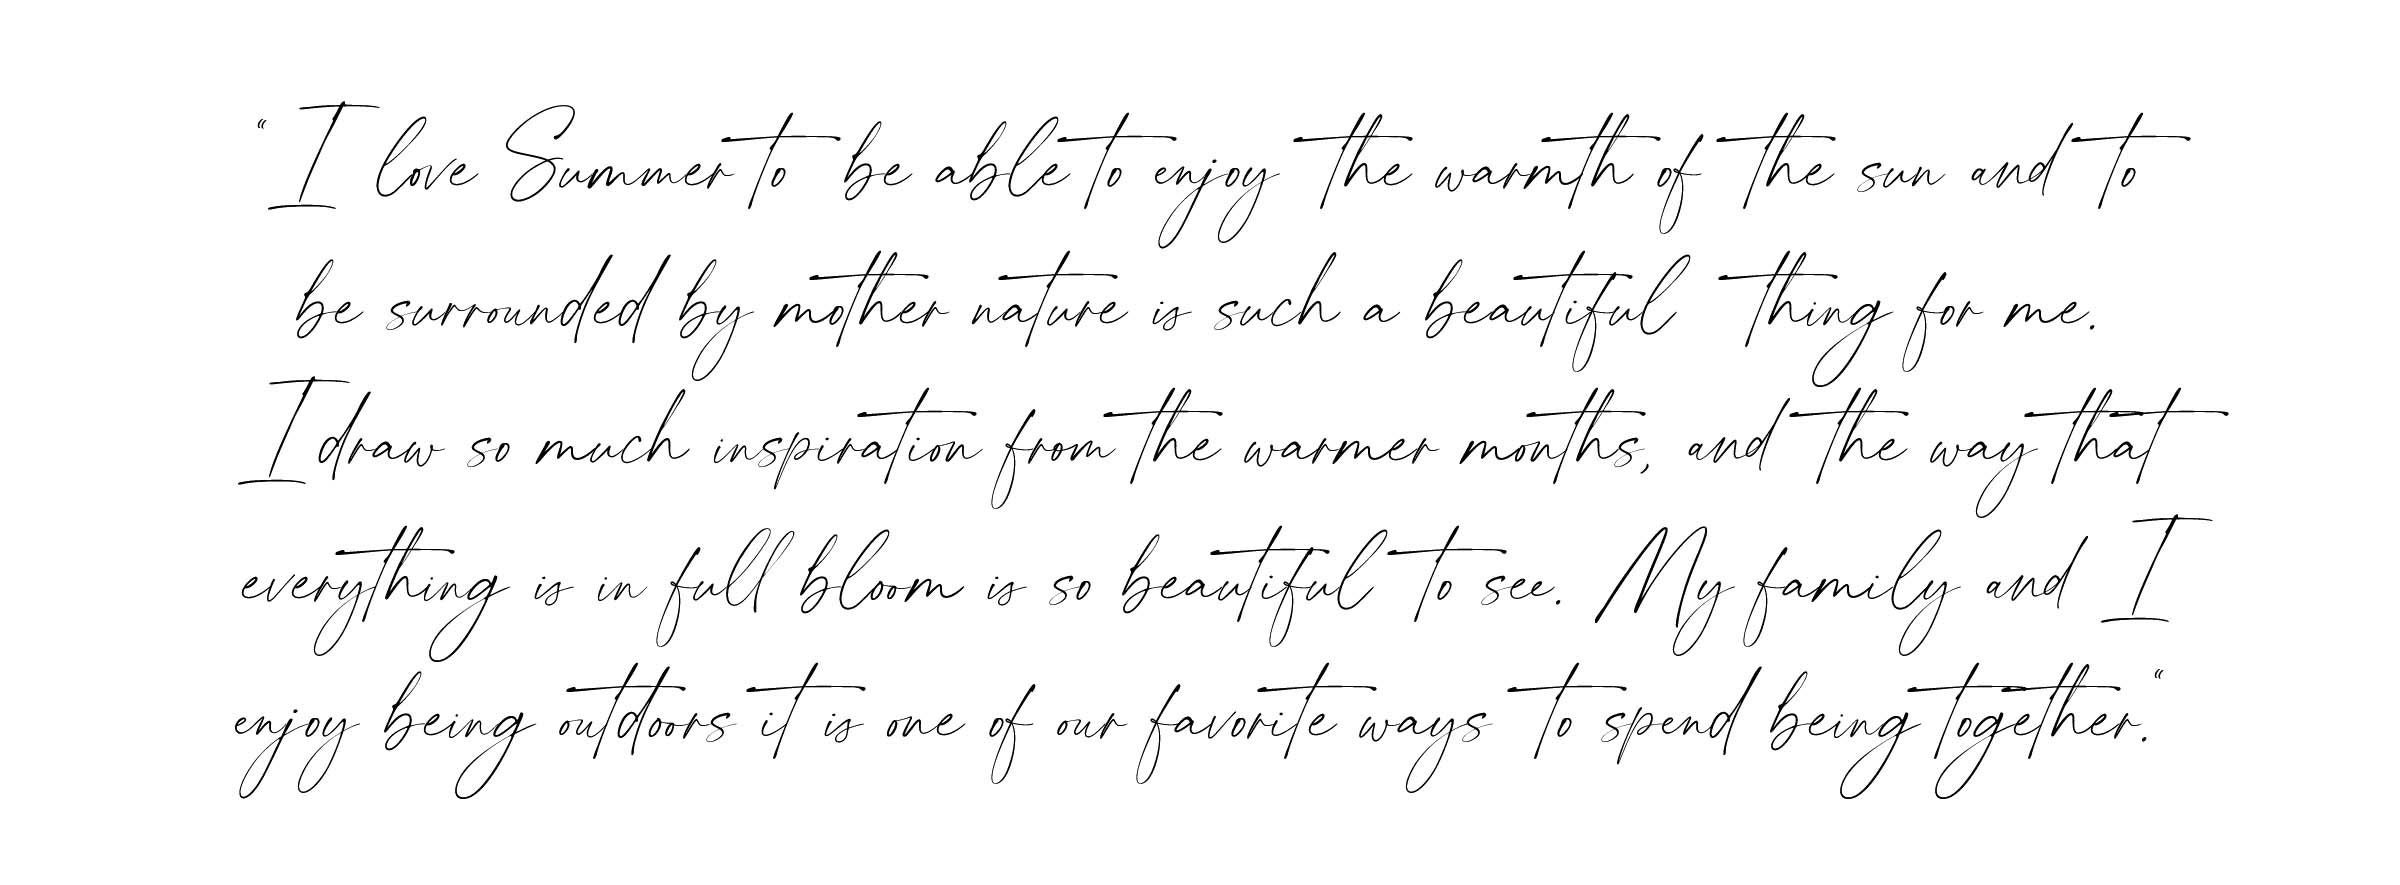 “I love Summer to be able to enjoy the warmth of the sun and to
be surrounded by mother nature is such a beautiful thing for me.
I draw so much inspiration from the warmer months, and the way that
everything is in full bloom is so beautiful to see. My family and I
enjoy being outdoors it is one of our favorite ways to spend being together.“